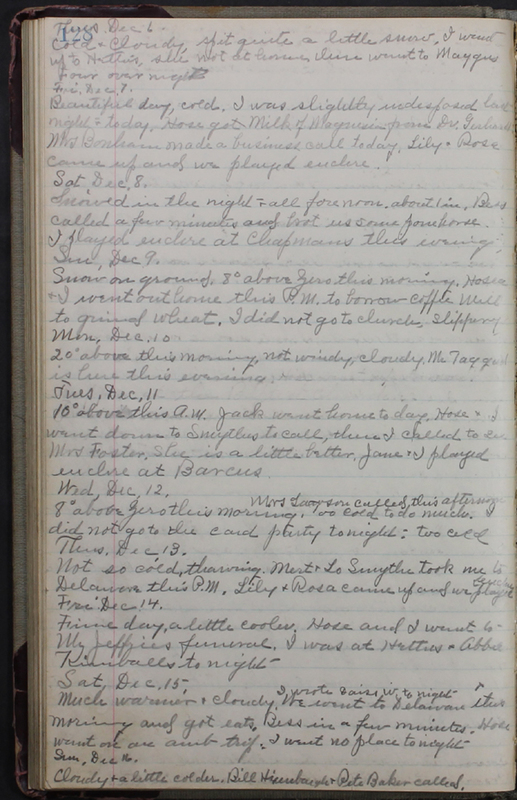 128
Thurs, Dec 6.
Cold & Cloudy, spit quite a little snow. I went
up to Hettie's, she not at home, then went to Maggie
for over night
Fri, Dec, 7.
Beautiful day, cold. I was slightly indisposed last
night & today. Hose got Milk of Magnesia from Dr.
Mrs Bonham made a business call today. Lily & Rose
came up and we played euchre.
Sat, Dec, 8.
Snowed in the night & all forenoon. about 1 in. Bess
called a few minutes and brot us some
I played euchre at Chapmans this evening.
Sun, Dec 9.
Snow on ground. 8° above zero this morning. Hosea
& I went out home this P.M. to borrow coffee mill
to grind wheat. I did not go to church, slippery
Mon, Dec, 10
20° above this morning, not windy, cloudy. Mr Taggart
is here this evening.
Tues, Dec, 11
10° above this A.M. Jack went home to day. Hose & I
went down to Smythes to call, then I called to see
Mrs Foster. She is a little better. Jane & I played
euchre at Barcus.
Wed, Dec, 12.
Mrs Lawson called, this afternoon
8° above zero this morning. Too cold to do much. I
did not go to the card party tonight; too cold
Thurs, Dec 13.
Not so cold, thawing. Mert & Lo Smythe took me to
Delaware this P.M. Lily & Rosa came up and we played
euchre
Fri. Dec 14.
Fine day, a little cooler, Hose and I went to
Mr Jeffries funeral. I was at Hetties & Abbie
Kimballs to night
Sat, Dec, 15,
I wrote W. to night
Much warmer & cloudy. We went to Delaware this
morning and got eats, Bess in a few minutes. Hose
went on an amb trip. I went no place to night
Sun, Dec 16.
Cloudy & a little colder. Bill & Pete Baker called.